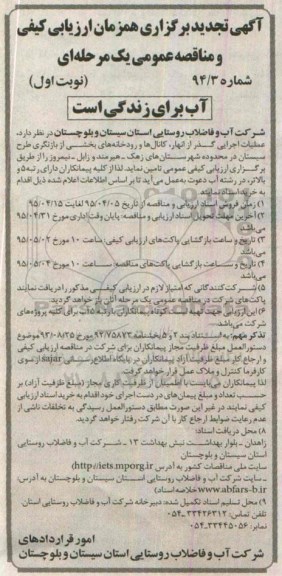 آگهی تجدید برگزاری همزمان ارزیابی کیفی
و مناقصه عمومی یک مرحله‌ای
شماره ۹۴/۳ (نوبت اول)
آب برای زندگی است
شرکت آب و فاضلاب روستایی استان سیستان و بلوچستان در نظر دارد،
عملیات اجرایی گذر از انهار، کانال‌ها و رودخانه‌های بخشی از بازنگری طرح
سیستان در محدوده شهرستان‌های زهک ـ هیرمند و زابل ـ نیمروز را از طریق
برگزاری ارزیابی کیفی عمومی تامین نماید، لذا از کلیه پیمانکاران دارای رتبه ۵ و
بالاتر، در رشته آب دعوت به‌عمل می‌آید تا بر اساس اطلاعات اعلام شده ذیل اقدام
به خرید اسناد نمایند.
۱) زمان فروش اسناد ارزیابی و مناقصه از تاریخ ۹۵/۰۴/۰۵ لغایت ۹۵/۰۴/۱۵
۲) آخرین مهلت تحویل اسناد ارزیابی و مناقصه: پایان وقت اداری مورخ ۹۵/۰۴/۳۱
می‌باشد.
۳) تاریخ و ساعت بازگشایی پاکت‌های ارزیابی کیفی: ساعت ۱۰ مورخ ۹۵/۰۵/۰۲
می‌باشد.
۴) تاریخ و ساعت بازگشایی پاکت‌های مناقصه: ساعت ۱۰ مورخ ۹۵/۰۵/۰۴
می‌باشد
۵) شرکت‌کنندگانی که امتیاز لازم در ارزیابی کیفی مذکور را دریافت نمایند
پاکت‌های شرکت در مناقصه عمومی یک مرحله‌ای آنان باز خواهد گردید.
۶) این ارزیابی جهت تهیه لیست کوتاه پیمانکاران با رتبه ۵ آب برای کلیه پروژه‌های
شرکت می‌باشد.
تذکر مهم: به استناد بند ۲ و ۵ بخشنامه ۹۳/۷۵۸۷۳ مورخ ۹۳/۰۸/۲۵ موضوع
دستورالعمل مبلغ ظرفیت مجاز پیمانکاران برای شرکت در مناقصه ارزیابی کیفی
و ارجاع کار مبلغ ظرفیت آزاد پیمانکاران در پایگاه اطلاع‌رسانی sajar از سوی
کارفرما کنترل و ملاک عمل قرار خواهد گرفت.
لذا پیمانکاران می‌بایست با اطمینان از ظرفیت کاری مجاز (مبلغ ظرفیت آزاد) بر
حسب تعداد و مبلغ پیمان‌های در دست اجرای خود اقدام به خرید اسناد ارزیابی
کیفی نمایند در غیر این صورت مطابق دستورالعمل رسیدگی به تخلفات ناشی از
عدم رعایت ضوابط ارجاع کار با آن شرکت رفتار خواهد گردید.
۸) محل دریافت اسناد:
زاهدان ـ بلوار بهداشت نبش بهداشت ۱۳ ـ شرکت آب و فاضلاب روستایی
استان سیستان و بلوچستان
سایت ملی مناقصات کشور به آدرس http://iets.mporg.ir)
سایت آب و فاضلاب روستایی استان سیستان و بلوچستان به آدرس:
www.abfars-b.ir خلاصه اسناد)
۹) محل تسلیم اسناد تکمیل شده: دبیرخانه شرکت آب و فاضلاب روستایی استان.
تلفن: ۳۳۴۲۶۳۱۲ـ۰۵۴
نمابر: ۳۳۴۴۵۰۵۶ـ۰۵۴
امور قراردادهای
شرکت آب و فاضلاب روستایی استان سیستان و بلوچستان